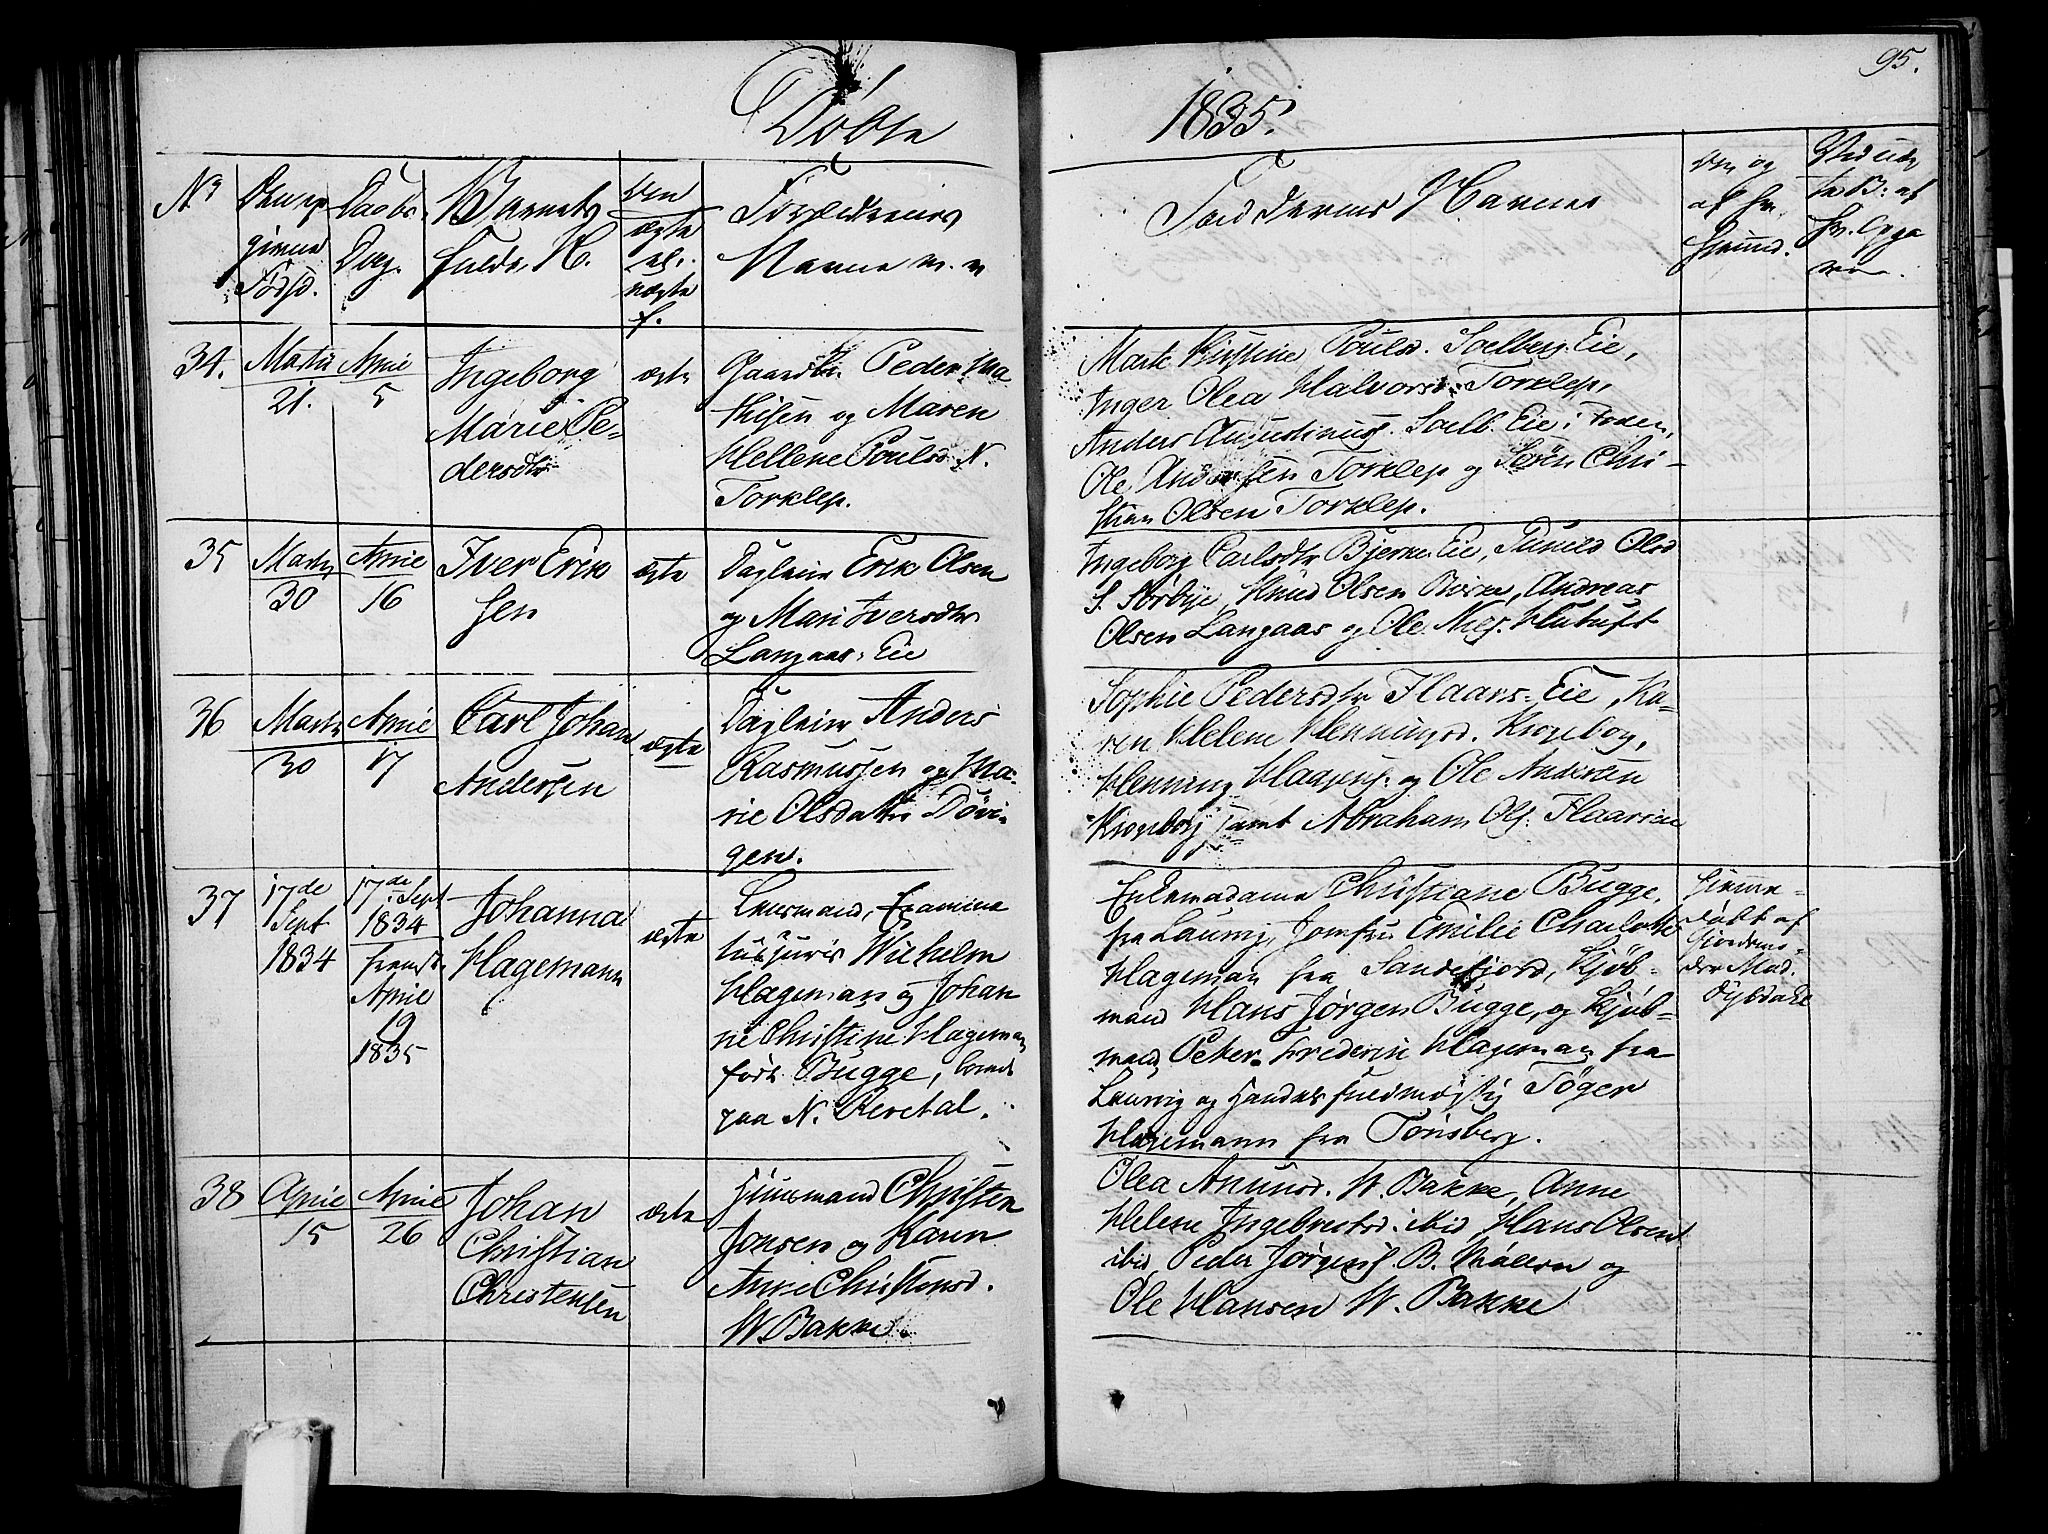 Døbte
1835.
95.
No
Den op
givne
Fødsd.
Daabs
Dag.
Barnets
fulde N.
Om
ægte
el.
uægte
f.
Forældrenes
Navne m. m
Faddernes Navne
Om og
af hv.
hjemmed.
34.
Marts
21.
April
5
Ingeborg
Marie Pe-
dersdtr
ægte
Gaardbr. Peder Ma
thisen og Maren
Hellene Poulsd. N.
Torklep.
Marte Kirstine Poulsd. Solberg Eie,
Inger Olea Halvorsd. Torklep,
Anders Augustinus. Solb. Eie i Foden,
Ole Andersen Torklep og Søren Chri-
stian Olsen Torklep.
35
Marts
30
April
16
Iver Erik
sen
ægte
Dagleier Erik Olsen
og Mari Iversdtr
Langaas Eie
Ingeborg Carlsdtr Bjerke Eie, Olsd
S. Sørbye, Knud Olsen Andreas
Olsen Langaas og Ole
36
Marts
30
April
17
Carl Johan
Andersen
ægte
Dagleier Anders
Rasmussen og Ma-
rie Olsdatter Døvi-
gen.
Sophie Pedersdtr Flaars Eie, Ka-
ren Helene Henningsd. Krogeborg,
Henning og Ole Andersen
Krogeborg samt Abraham Ols.
37
17de
Sept
1834
17de Sept
1834
fremst.
April
19
1835
Johanna
Hagemann
ægte
Leiermand, Examina
tus juris Wilhelm
Hageman og Johan
ne Christine Hageman
født Bugge,
paa N. Revetal.
Enkemadame Christiane Bugge,
fra Laurvig, Jomfru Emilie Charlotte
Hageman fra Sandefjord, Kjøb-
mand Hans Jørgen Bugge, og Kjøb-
mand Peter Frederik Hageman fra
Laurvig og Handels fuldmægtig Tøger
Hagemann fra Tønsberg.
hjemme-
døbt af
Jordemo-
der Mad.
Dybdahl
38
April
15
April
26
Johan
Christian
Christensen
ægte
Huusmand Christen
Jonsen og Karen
Anne Christensd.
W. Bakke.
Olea Amunsd. W. Bakke, Anne
Helene Ingebretsd. ibid, Hans Olsen
ibid, Peder Jørgens. B. Møllern og
Ole Hansen W. Bakke